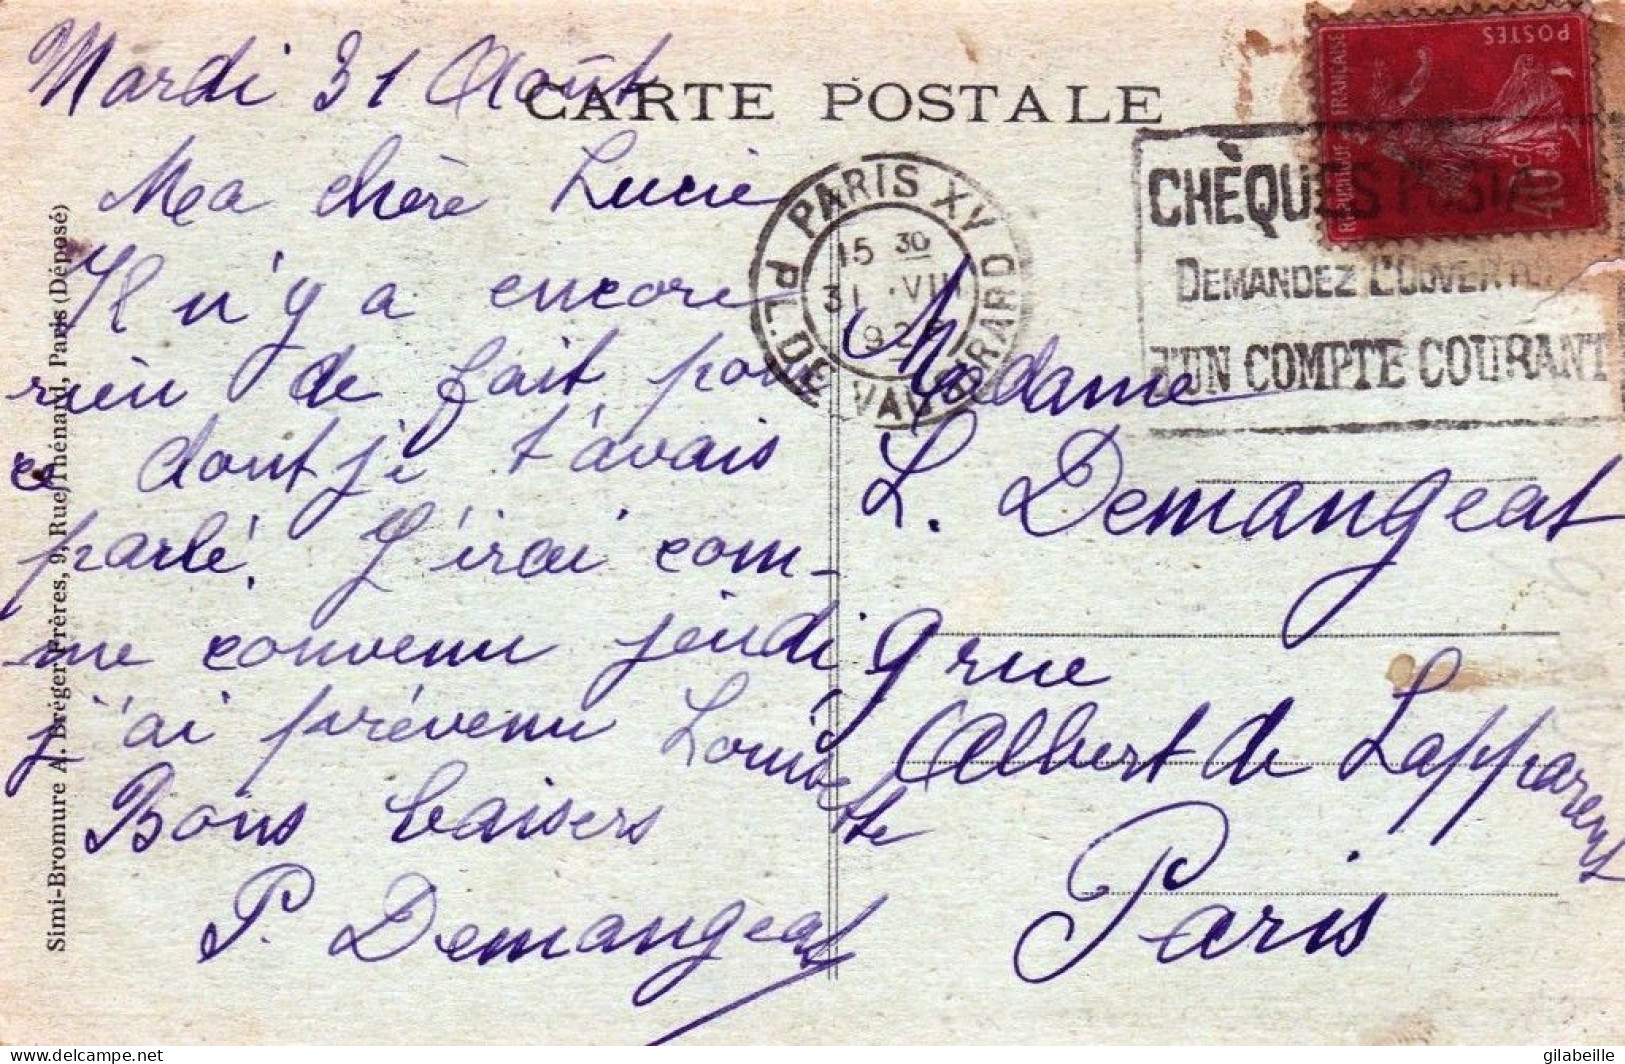 Mardi 31 Août
CARTE POSTALE
Ma chère Lucie
Il n'y a encore
rien de fait pour
ce dont je t'avais
parlé. J'irai com-
me convenu jeudi
j'ai prévenu Louisette
Bons baisers
P. Demangeat
Madame
L. Demangeat
9 rue
Albert de Lapparent
Paris
PARIS XV
PL. DE VAUGIRARD
15 30
31 VIII
CHÈQUES POSTAUX
DEMANDEZ L'OUVERTURE
D'UN COMPTE COURANT
REPUBLIQUE FRANÇAISE
POSTES
40 c.
Simi-Bromure A. Bréger Frères, 9, Rue Thénard, Paris (Déposé)
https://www.delcampe.net
gilabeille